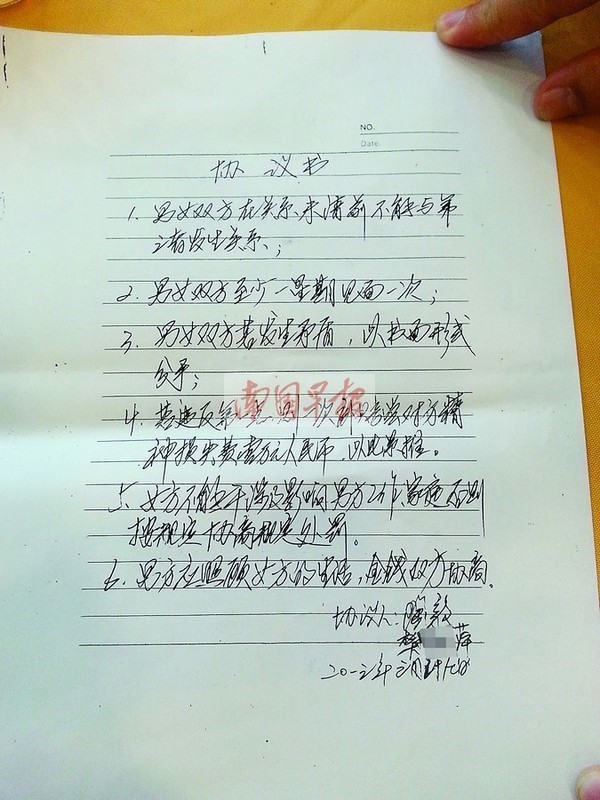 NO.
Date.
协 议 书
1. 男女双方在关系未清前不能与第
三者发生关系；
2. 男女双方至少一星期见面一次；
3. 男女双方若发生矛盾，以书面形式
南国早报
4. 若违反第 一次 对方精
神损失费壹万元人民币，以此类推。
5. 女方不能干涉及影响男方工作、家庭否则
按规定协商规定处罚。
6. 男方应照顾女方的生活，金钱双方协商。
协议人：陶毅
樊 萍
二0一三年